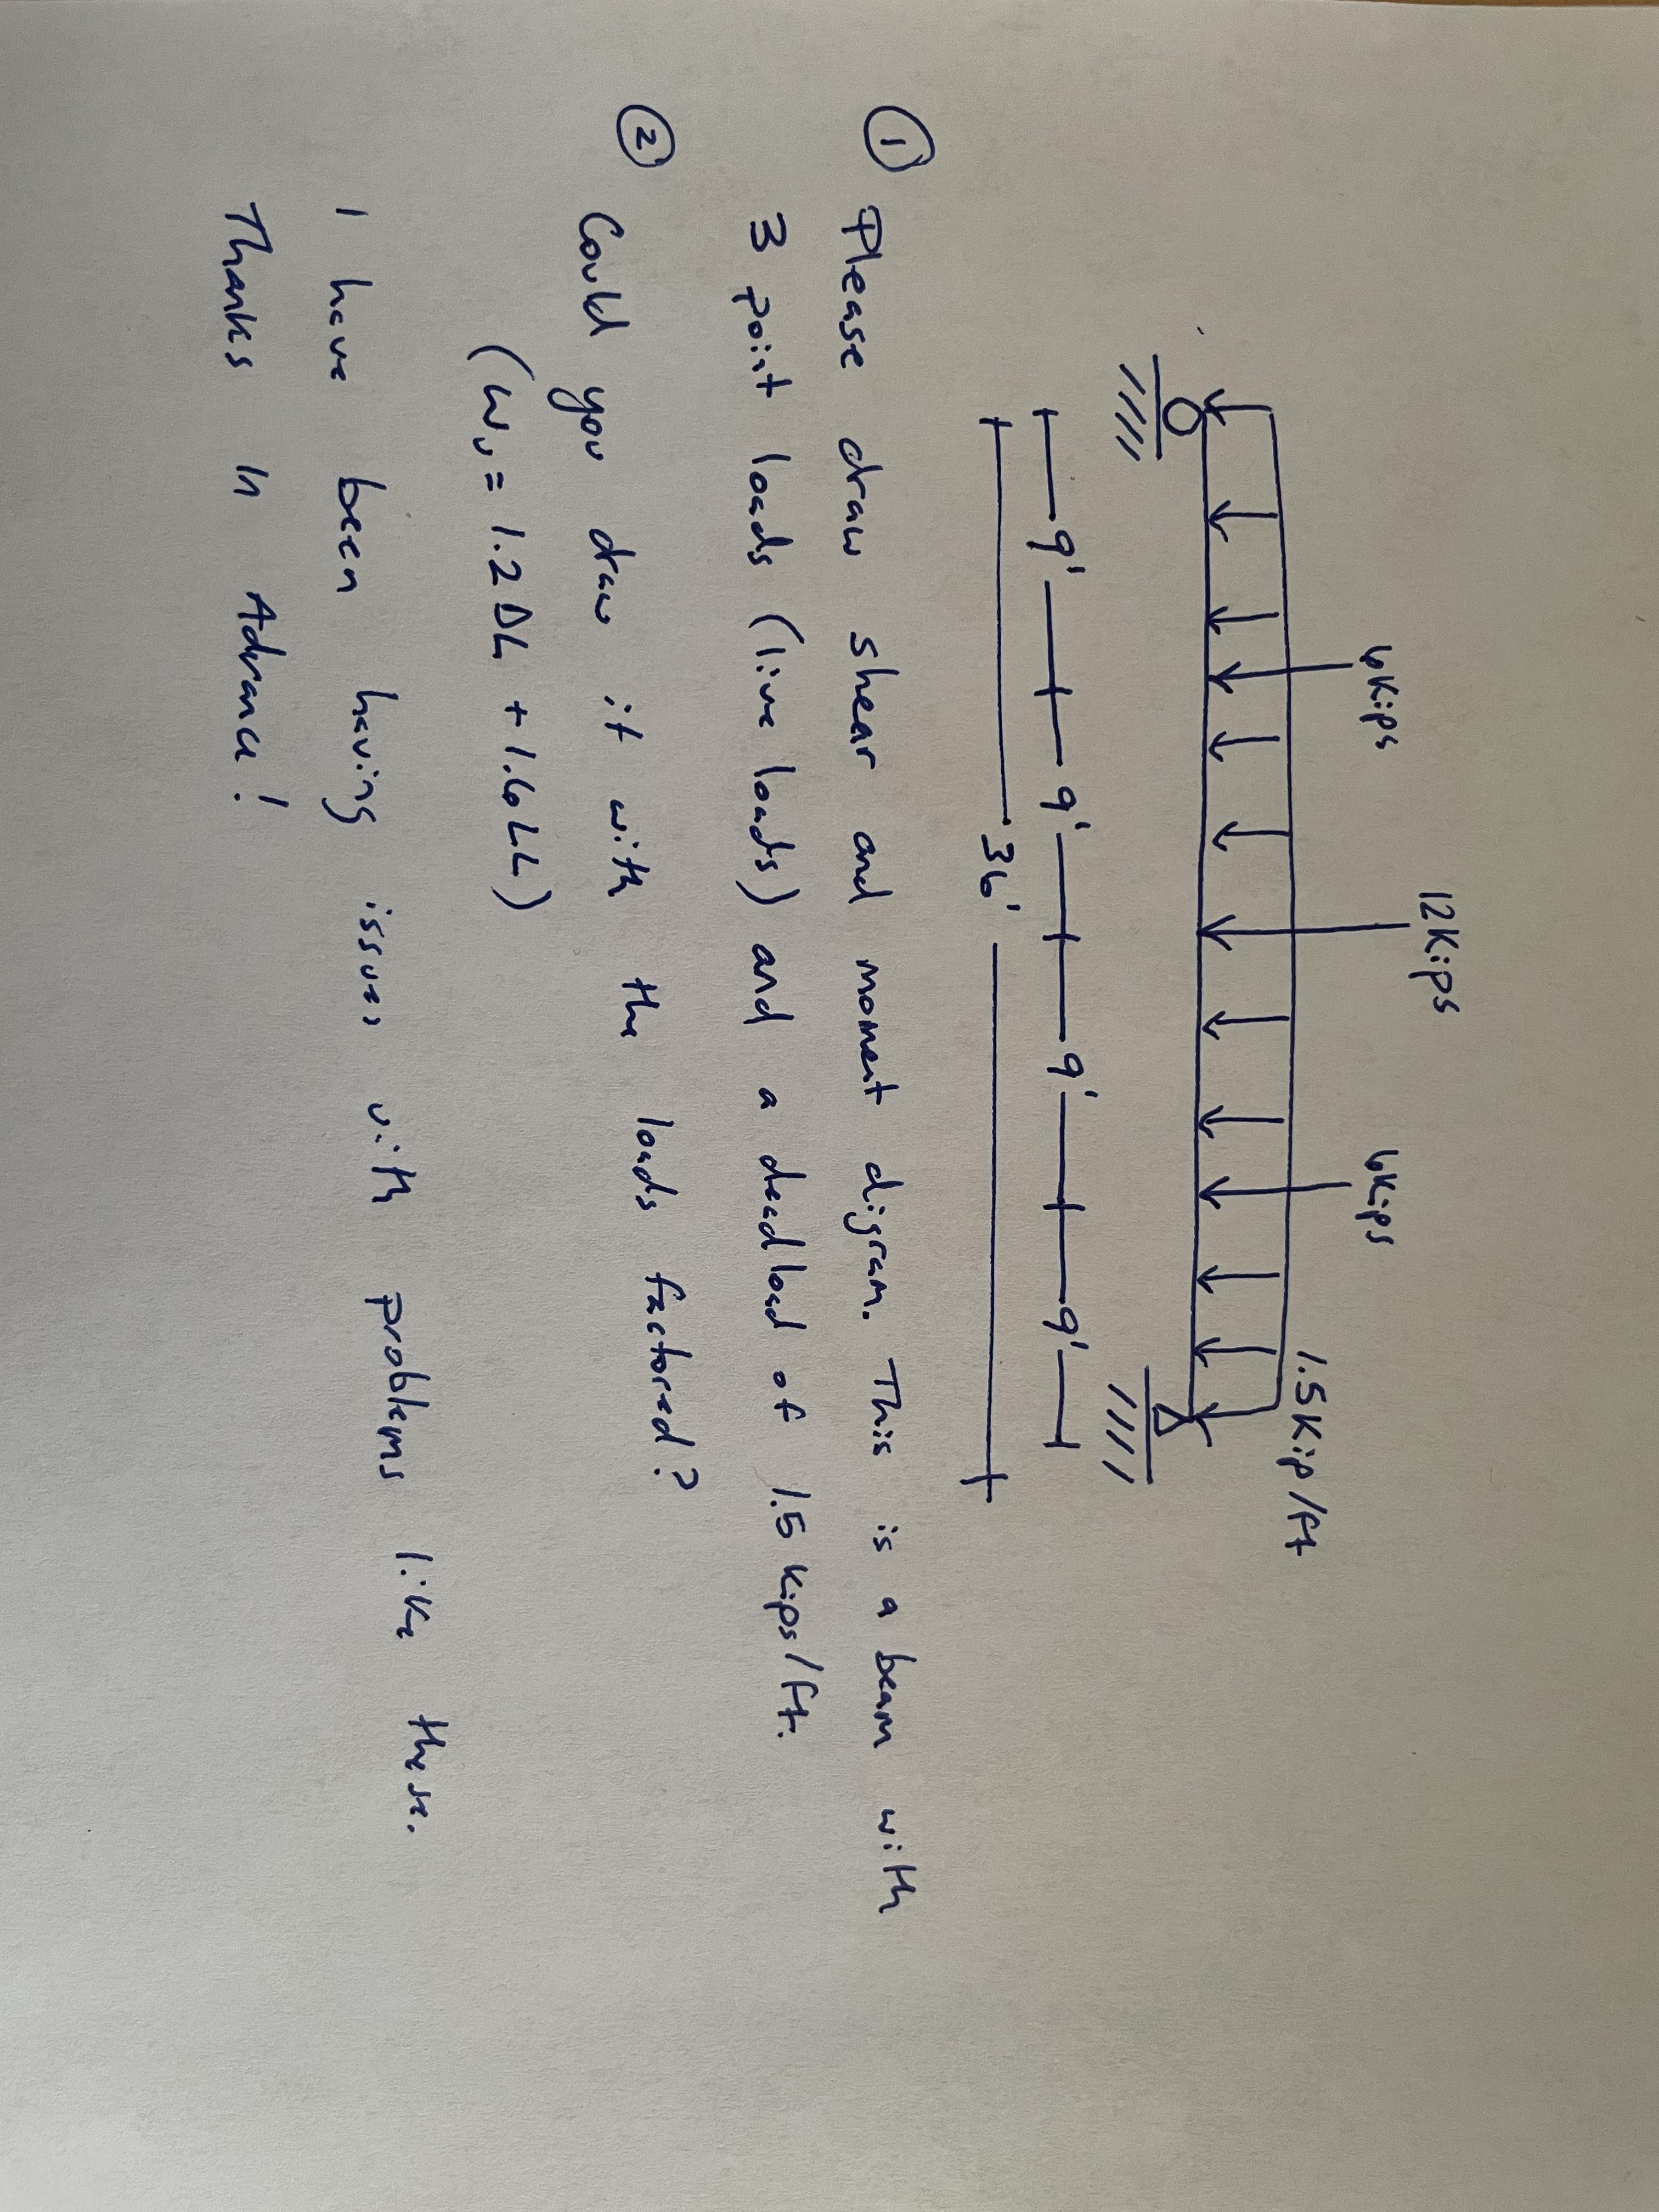 12Kips
6Kips
6Kips
1.5Kip/ft
9' 9' 9' 9'
36'
① Please draw shear and moment digram. This is a beam with
3 point loads (live loads) and a deadload of 1.5 kips/ft.
② Could you draw it with the loads factored?
(Wu = 1.2DL + 1.6LL)
I have been having issues with problems like these.
Thanks In Advance!